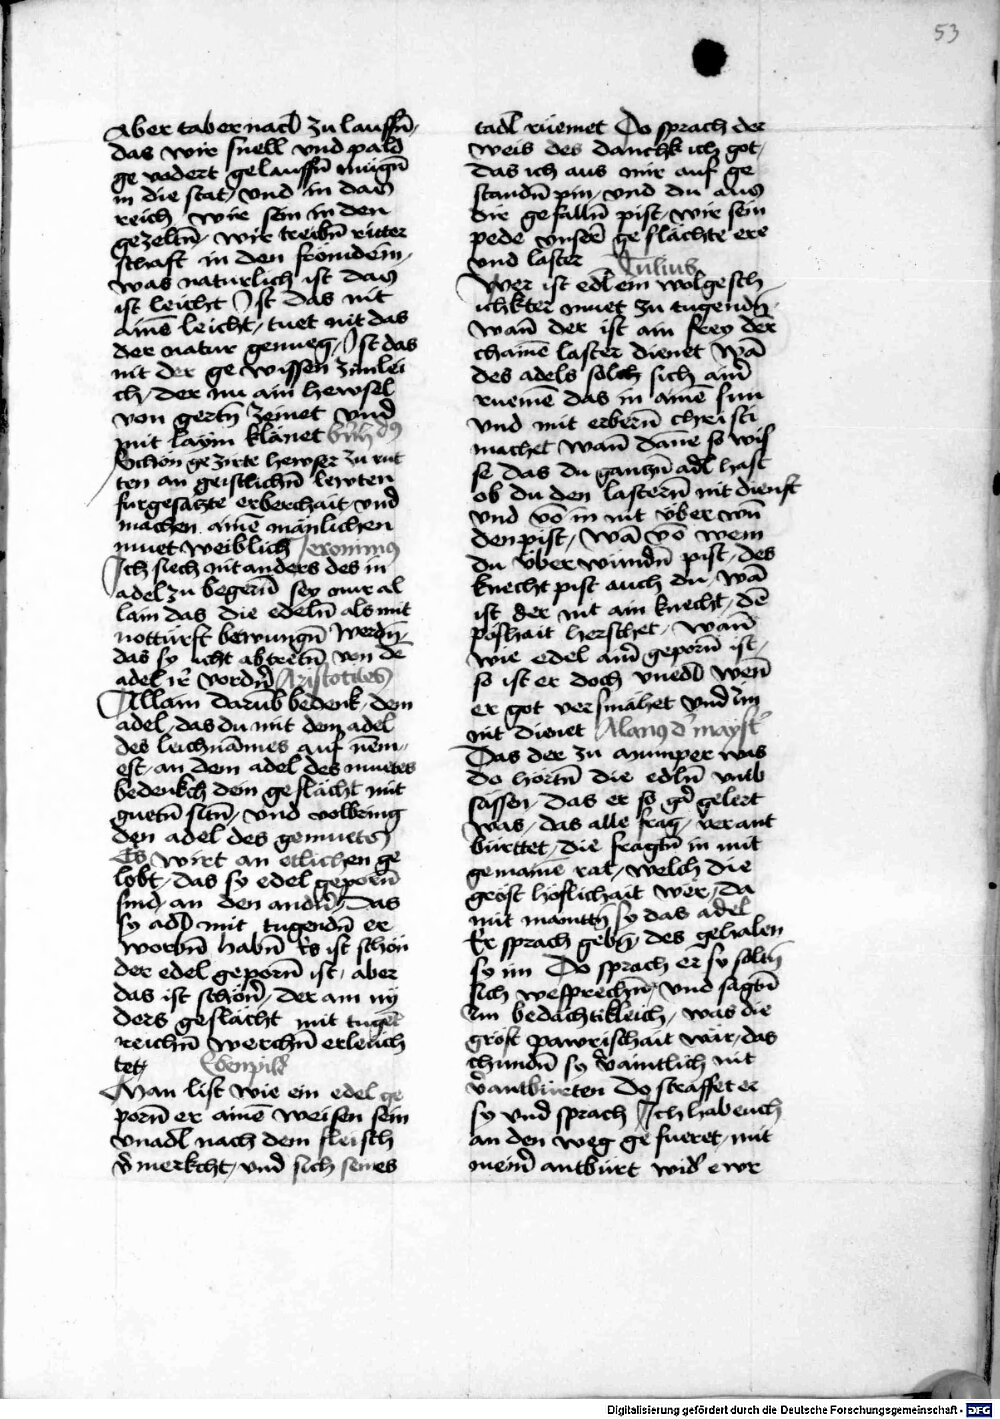 53
Aber tabernacl zu lauffn̄,
das wir snell vnd pald
ge vodert gelauffn̄ mugn̄
in die stat, vnd in das
reich, wir sein in den
gezeltn̄, wir treibn̄ ritter
schaft in den fromdem,
was naturlich ist das
ist leicht Ist das nit
ainē leicht, tuet nit das
der natur genueg, Ist das
nit der ge wissen zimlei
ch, der nu ain hewsel
von gertn̄ zeinet vnd
mit laym klänet
Schön gezirte hewser zu rut
ten an geistlichn̄ lewten
furgesatzte erberchait vnd
machen ainē mänlichen
muet weiblich Jeronimus
Ich siech nit anders des in
adel zu begern̄ sey nur al
lain das die edeln̄ als mit
notturft bewungn̄ werdn̄,
das sy icht abtretn̄ von dē
adel ir̄ vordn̄ Aristotiles
Allain darūb bedenk, dem
adel, das du mit dem adel
des leichnames auf nem,
est, an dem adel des muetes
bedenkch dein geslächt mit
guetn̄ sitn̄, vnd volbring
den adel des gemuets
Es wirt an etlichen ge
lobt, das sy edel geporn̄
sind, an den andn̄, Das
sy adl mit tugendn̄ er
worbn̄ habn̄ Es ist schön
der edel geporn̄ ist, aber
das ist schön̄, der am ny
ders geslächt mit tuget
reichn̄ werchn̄ erleuch
tet, Ebenpild
Man list wie ein edel ge
porn̄ er ainē weisen sein
vnadl nach dem fleisch
v̄merkcht, vnd sich seines
tadl rüemet Do sprach der
weis des danchk ich got,
das ich aus mir auf ge
standn̄ pin, vnd du aus
dir gefalln̄ pist, wir sein
pede vnserē geslächte ere
vnd laster Tulius
Wer ist edl ein wolgesch
ichkter muet zu tugendn̄
wan̄ der ist ain frey der
chainē laster dienet Wā
des adels solch sich ain̄
ruemē das in ainē sun
vnd mit erbern̄ christi
machet wan̄ dane so wis
se das du ganczn̄ adl hast
ob du den lastern̄ nit dienst
vnd vō in nit vber wn̄
den pist, wā vō wem
du vber wundn̄ pist, des
knecht pist auch du, wā
ist der nit ain knecht, dē
poshait herschet, wan̄
wie edel ain̄ geporn̄ ist,
so ist er doch vnedl wen̄
er got versmähet vnd im
nit dienet Alanus d' mayst'
Das der zu munper was
do hortn̄ die edln̄ vntb
sässen, das er so gar̄ gelert
was, das alle frag, verant
bürttet, die fragtn̄ in mit
gemainē rat, welch die
gröst höflichait wer, da
mit man̄ sy das adel
Er sprach gebn̄, des gehalen
sy im Do sprach er sy soltn̄
sich wesprechn̄, vnd sagtn̄
im bedächtikleich, was die
gröst pawrischait wär, das
chundn̄ sy v̄aintlich nit
v̄antbürten Do straffet er
sy vnd sprach Ich hab euch
an den weg ge fueret, mit
mein̄ antbürt wid' ewr
Digitalisierung gefördert durch die Deutsche Forschungsgemeinschaft - DFG